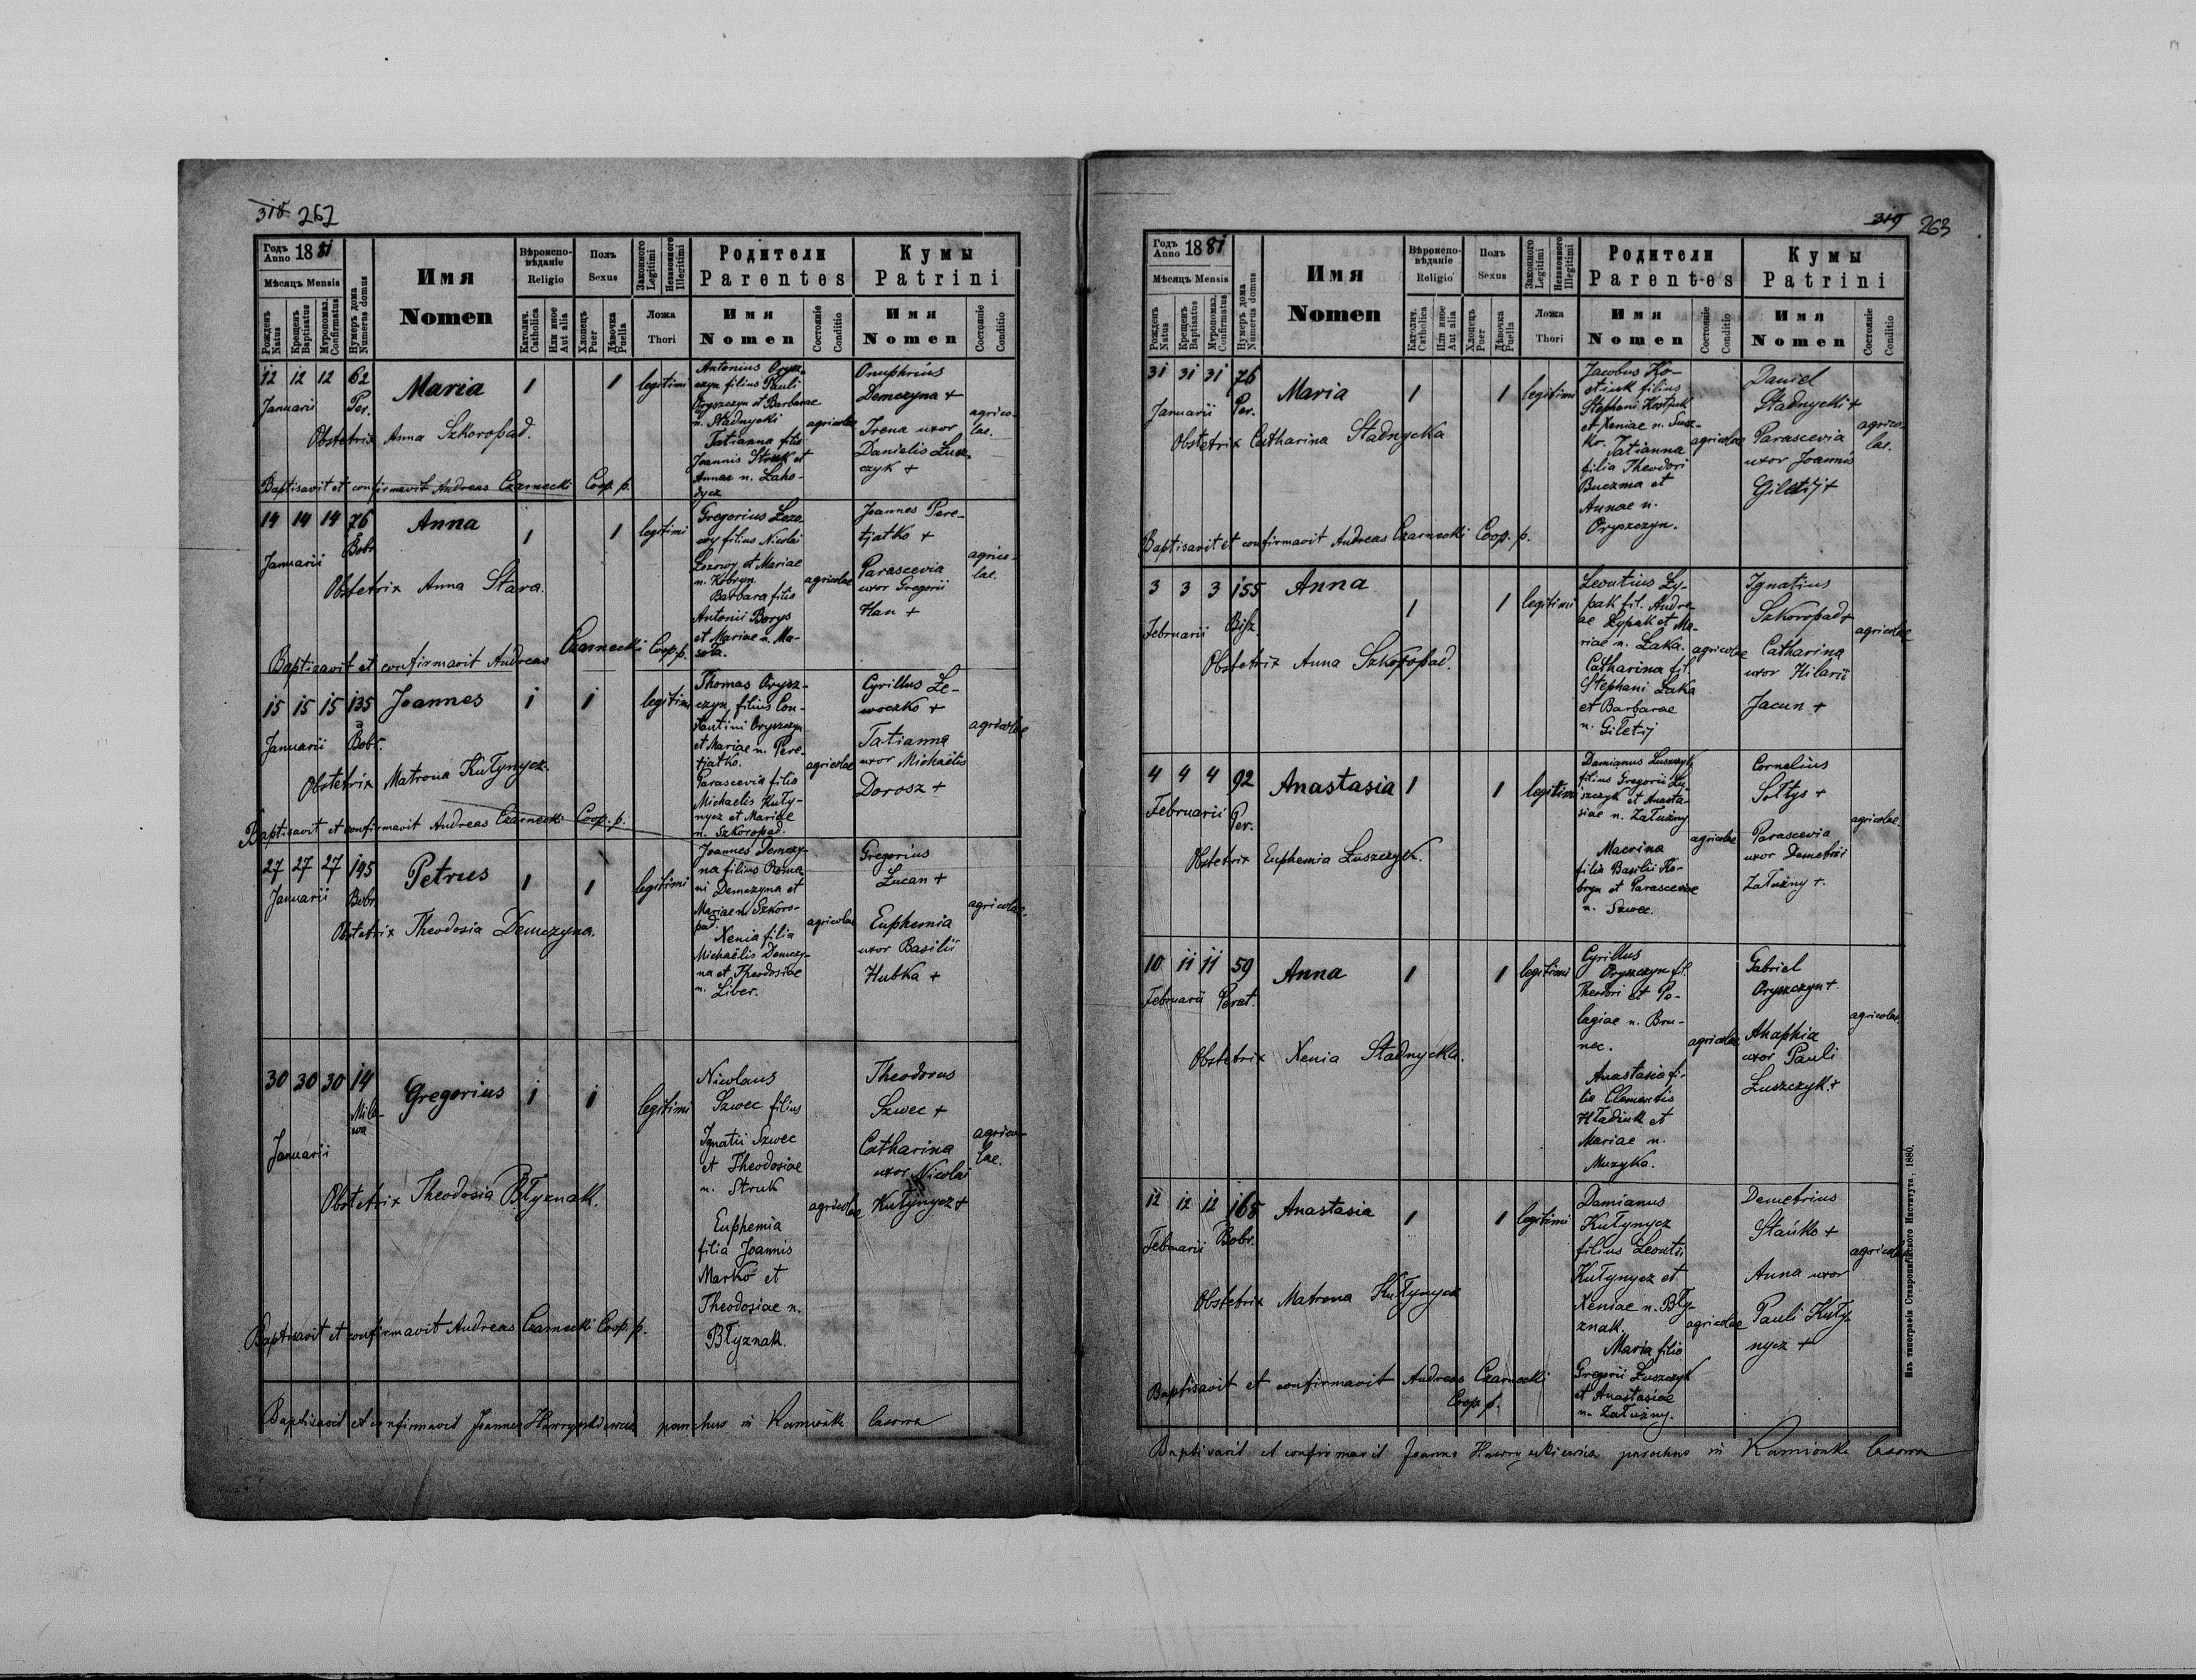 318 262
Годъ Anno 1881
Мѣсяцъ Mensis
Рожденъ Natus
Крещенъ Baptisatus
Муропомаз. Confirmatus
Нумеръ дома Numerus domus
Имя
Nomen
Вѣроиспо-
вѣданіе
Religio
Католич. Catholica
Или иное Aut alia
Полъ
Sexus
Хлопецъ Puer
Дѣвочка Puella
Законного Legitimi
Незаконного Illegitimi
Ложа
Thori
Родители
Parentes
Имя
Nomen
Состояніе Conditio
Кумы
Patrini
Имя
Nomen
Состояніе Conditio
12 12 12 62 Maria 1 1 legitimi
Januarii Per.
Obstetrix Anna Szkoropad.
Antonius Orysz-
czyn filius Pauli
Oryszczyn et Barbarae
n. Stadnycki
Tatianna filia
Joannis Struk et
Annae n. Laho-
dycz
agricolae
Onuphrius
Demczyna +
Irena uxor
Danielis Łusz-
czyk +
agrico-
lae.
Baptisavit et confirmavit Andreas Czarnecki Coop. p.
14 14 14 76 Anna 1 1 legitimi
Januarii Bobr.
Obstetrix Anna Stara.
Gregorius Lozo-
wy filius Nicolai
Lozowy et Mariae
n. Kobryn.
Barbara filia
Antonii Borys
et Mariae n. Ma-
sota.
agricolae
Joannes Pere-
tjatko +
Parascevia
uxor Gregorii
Han +
agrico-
lae.
Baptizavit et confirmavit Andreas Czarnecki Coop. p.
15 15 15 135 Joannes 1 1 legitimi
Januarii Bobr.
Obstetrix Matrona Kułynycz.
Thomas Orysz-
czyn, filius Con-
stantini Oryszczyn
et Mariae n. Pere-
tjatko.
Parascevia filia
Michaelis Kuły-
nycz et Mariae
n. Szkoropad.
agricolae
Cyrillus Le-
woczko +
Tatianna
uxor Michaëlis
Dorosz +
agricolae
Baptisavit et confirmavit Andreas Czarnecki Coop. p.
27 27 27 195 Petrus 1 1 legitimi
Januarii Bobr.
Obstetrix Theodosia Demczyna.
Joannes Demczy-
na filius Roma-
ni Demczyna et
Mariae n. Szkoro-
pad.
Xenia filia
Michaëlis Demczy-
na et Theodosiae
n. Liber.
agricolae
Gregorius
Łucan +
Euphemia
uxor Basilii
Hubka +
agricolae.
30 30 30 14 Gregorius 1 1 legitimi
Mile-
wa
Januarii
Obstetrix Theodosia Błyznak.
Nicolaus
Szwec filius
Ignatii Szwec
et Theodosiae
n. Struk
Euphemia
filia Joannis
Marko et
Theodosiae n.
Błyznak.
agricolae
Theodorus
Szwec +
Catharina
uxor Nicolai
Kułynycz +
agrico-
lae.
Baptisavit et confirmavit Andreas Czarnecki Coop. p.
Baptisavit et confirmavit Joannes parochus in Kamionka
319 263
Годъ Anno 1881
Мѣсяцъ Mensis
Рожденъ Natus
Крещенъ Baptisatus
Муропомаз. Confirmatus
Нумеръ дома Numerus domus
Имя
Nomen
Вѣроиспо-
вѣданіе
Religio
Католич. Catholica
Или иное Aut alia
Полъ
Sexus
Хлопецъ Puer
Дѣвочка Puella
Законного Legitimi
Незаконного Illegitimi
Ложа
Thori
Родители
Parentes
Имя
Nomen
Состояніе Conditio
Кумы
Patrini
Имя
Nomen
Состояніе Conditio
31 31 31 76 Maria 1 1 legitimi
Januarii Per.
Obstetrix Catharina Stadnycka
Jacobus Ko-
stiuk filius
Stephani Kostjuk
et Xeniae n. Susz-
ko. Tatianna
filia Theodori
Buczma et
Annae n.
Oryszczyn.
agricolae
Daniel
Stadnycki +
Parascevia
uxor Joannis
Giletij +
agrico-
lae.
Baptisavit et confirmavit Andreas Czarnecki Coop. p.
3 3 3 155 Anna 1 1 legitimi
Februarii
Obstetrix Anna Szkoropad.
Leontius Ły-
pak fil. Andre-
ae Łypak et Ma-
riae n. Łaka.
Catharina fil.
Stephani Łaka
et Barbarae
n. Giletij
agricolae
Ignatius
Szkoropad +
Catharina
uxor Hilarii
Jacun +
agricolae
4 4 4 92 Anastasia 1 1 legitimi
Februarii Per.
Obstetrix Euphemia Łuszczyk.
Damianus Łuszczyk
filius Gregorii Łu-
szczyk et Anasta-
siae n. Załużny
Macrina
filia Basilii Ko-
bryn et Parasceviae
n. Szwec.
agricolae
Cornelius
Sołtys +
Parascevia
uxor Demetrii
Załużny +.
agricolae.
10 11 11 59 Anna 1 1 legitimi
Februarii Perat.
Obstetrix Xenia Stadnycka.
Cyrillus
Oryszczyn fil.
Theodori et Pe-
lagiae n. Bru-
nec.
Anastasia fi-
lia Clementis
Hładiuk et
Mariae n.
Muzyka.
agricolae
Gabriel
Oryszczyn +.
Ahaphia
uxor Pauli
Łuszczyk. +
agricolae.
12 12 12 168 Anastasia 1 1 legitimi
Februarii Bobr.
Obstetrix Matrona Kułynycz
Damianus
Kułynycz
filius Leontii
Kułynycz et
Xeniae n. Bły-
znak.
Maria filia
Gregorii Łuszczyk
et Anastasiae
n. Załużny.
agricolae
Demetrius
Stańko +
Anna uxor
Pauli Kuły-
nycz +
agricolae
Baptisavit et confirmavit Andreas Czarnecki
Coop. p.
Baptisavit et confirmavit Joannes parochus in Kamionka
Изъ типографіи Ставропигійского Института; 1880.